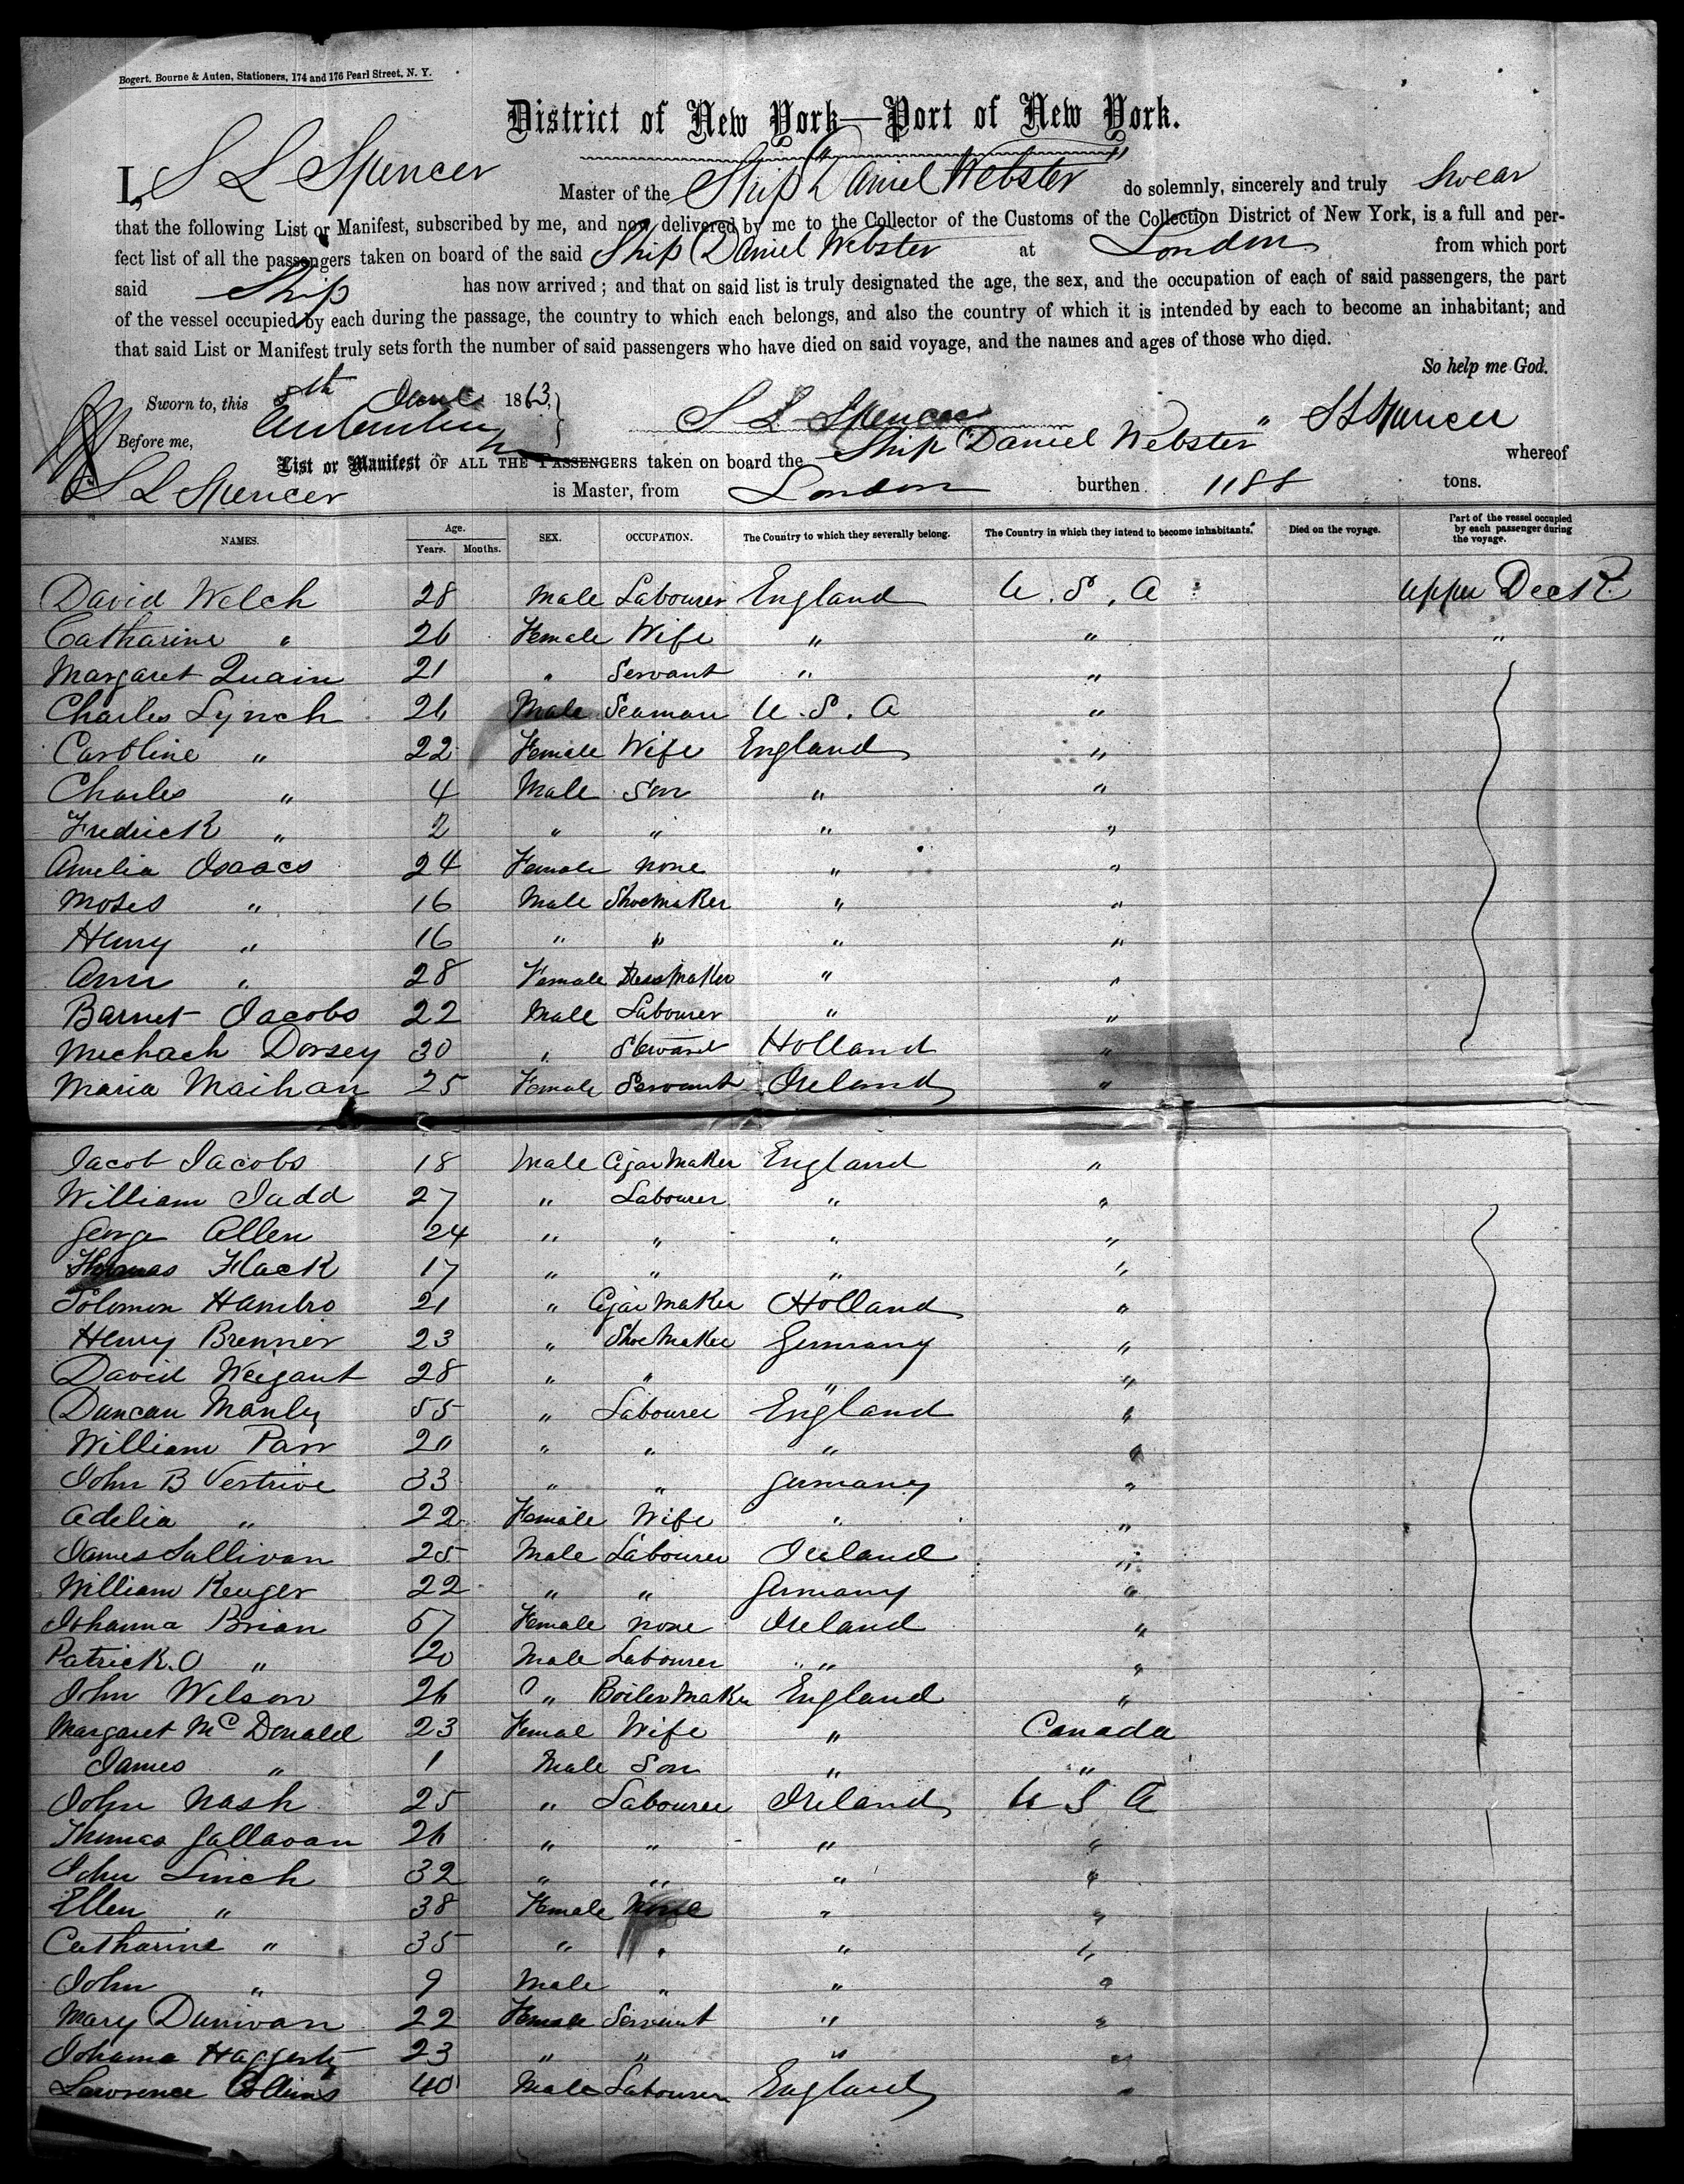 Bogert, Bourne & Auten, Stationers, 174 and 176 Pearl Street, N. Y.
District of New York—Port of New York.
I, S L Spencer Master of the Ship "Daniel Webster" do solemnly, sincerely and truly Swear
that the following List or Manifest, subscribed by me, and now delivered by me to the Collector of the Customs of the Collection District of New York, is a full and per-
fect list of all the passengers taken on board of the said Ship Daniel Webster at London from which port
said Ship has now arrived; and that on said list is truly designated the age, the sex, and the occupation of each of said passengers, the part
of the vessel occupied by each during the passage, the country to which each belongs, and also the country of which it is intended by each to become an inhabitant; and
that said List or Manifest truly sets forth the number of said passengers who have died on said voyage, and the names and ages of those who died.
So help me God.
Sworn to, this 8th June 1863,
S L Spencer
Before me,
List or Manifest OF ALL THE PASSENGERS taken on board the Ship "Daniel Webster" S L Spencer whereof
S L Spencer is Master, from London burthen 1188 tons.
NAMES. Age. Years. Months. SEX. OCCUPATION. The Country to which they severally belong. The Country in which they intend to become inhabitants. Died on the voyage. Part of the vessel occupied by each passenger during the voyage.
David Welch 28 Male Labourer England U. S. A Upper Deck
Catharine " 26 Female Wife " " "
Margaret Quain 21 " Servant " "
Charles Lynch 26 Male Seaman U. S. A "
Caroline " 22 Female Wife England "
Charles " 4 Male Son " "
Fredrick " 2 " " " "
Amelia Isaacs 24 Female None " "
Moses " 16 Male Shoemaker " "
Henry " 16 " " " "
Ann " 28 Female Dressmaker " "
Barnet Jacobs 22 Male Labourer " "
Mechach Dorsey 30 " Steward Holland "
Maria Maihan 25 Female Servant Ireland "
Jacob Jacobs 18 Male Cigar Maker England "
William Judd 27 " Labourer " "
George Allen 24 " " " "
Thomas Flack 17 " " " "
Solomon Hambro 21 " Cigar Maker Holland "
Henry Brenner 23 " Shoe Maker Germany "
David Weigant 28 " " " "
Duncan Manly 55 " Labourer England "
William Parr 20 " " " "
John B Vestrive 33 " " Germany "
Adelia " 22 Female Wife " "
James Sullivan 25 Male Labourer Ireland "
William Keuger 22 " " Germany "
Johanna Brian 57 Female None Ireland "
Patrick. O " 20 Male Labourer " "
John Wilson 26 " Boiler Maker England "
Margaret McDonald 23 Femal Wife " Canada
James " 1 Male Son " "
John Nash 25 " Labourer Ireland U S A
Thomas Gallavan 26 " " " "
John Linch 32 " " " "
Ellen " 38 Female None " "
Catharine " 35 " " " "
John " 9 Male " " "
Mary Dunivan 22 Female Servant " "
Johanna Haggerty 23 " " " "
Lawrence Collins 40 Male Labourer England "